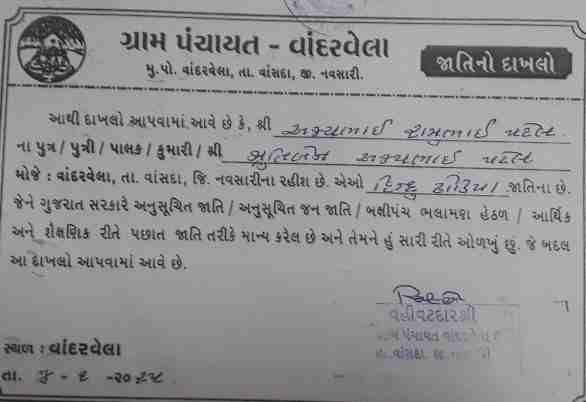 ગ્રામ પંચાયત - વાંદરવેલા
જાતિનો દાખલો
મુ.પો. વાંદરવેલા, તા. વાંસદા, જી. નવસારી.
આથી દાખલો આપવામાં આવે છે કે, શ્રી પટેલ
ના પુત્ર / પુત્રી / પાલક / કુમારી / શ્રી પટેલ
મોજે : વાંદરવેલા, તા. વાંસદા, જિ. નવસારીના રહીશ છે. એઓ હિન્દુ ઢોડિયા જાતિના છે.
જેને ગુજરાત સરકારે અનુસૂચિત જાતિ / અનુસૂચિત જન જાતિ / બક્ષીપંચ ભલામણ હેઠળ / આર્થિક
અને શૈક્ષણિક રીતે પછાત જાતિ તરીકે માન્ય કરેલ છે અને તેમને હું સારી રીતે ઓળખું છું. જે બદલ
આ દાખલો આપવામાં આવે છે.
વહીવટદારશ્રી
ગ્રામ પંચાયત વાંદરવેલા
તા. વાંસદા
સ્થળ : વાંદરવેલા
તા.